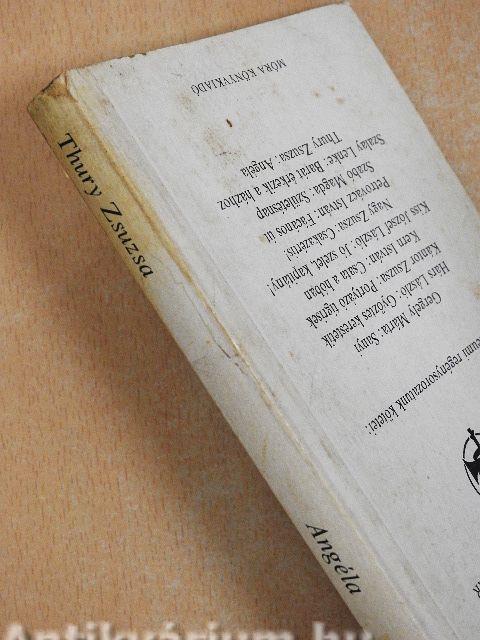 Thury Zsuzsa
Angéla
regénysorozatunk kötetei:
Gergely Márta: Sanyi
Hárs László: Győztes kerestetik
Kántor Zsuzsa: Portyázó ügrisek
Kern István: Csata a hóban
Kiss József László: Jó szelet, kapitány!
Nagy Zsuzsa: Csakazértis!
Petrovácz István: Fácános út
Szabó Magda: Születésnap
Szalay Lenke: Barát érkezik a házhoz
Thury Zsuzsa: Angéla
MÓRA KÖNYVKIADÓ
Antikvárium.hu